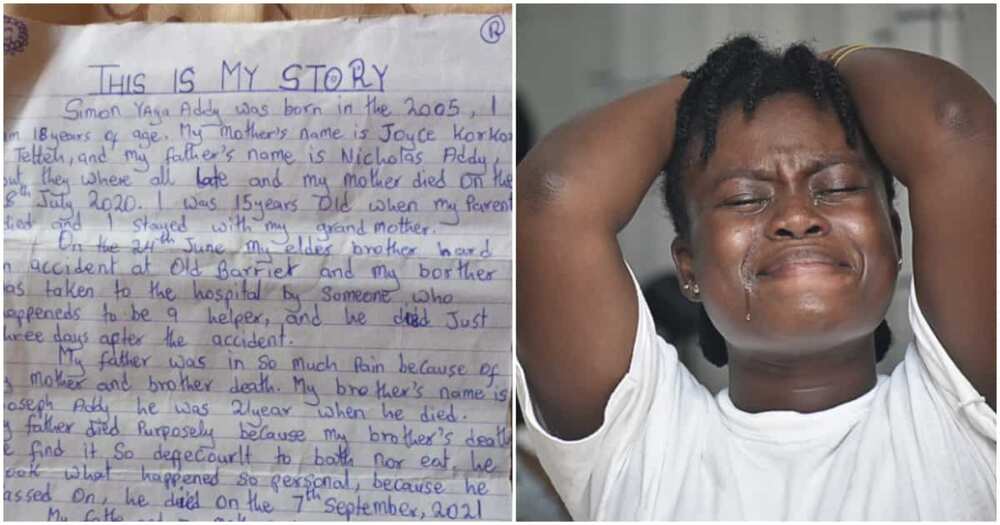 R
THIS IS MY STORY
Simon Yaya Addy was born in the 2005, I
m 18 years of age. My mother's name is Joyce Korkor
Tetteh, and my father's name is Nicholas Addy,
but they where all late and my mother died on the
8th July 2020. I was 15 years old when my Parent
died and I stayed with my grand mother.
On the 24th June my elder brother hard
n accident at Old Barrier and my borther
as taken to the hospital by Someone who
appeneds to be a helper, and he died Just
hree days after the accident.
My father was in So much Pain because of
y mother and brother death. My brother's name is
oseph Addy he was 21year when he died.
y father died Purposely because my brother's death
e find it So degecourlt to bath nor eat, he
ook what happened so personal, because he
assed on, he died on the 7th September, 2021
My fathe